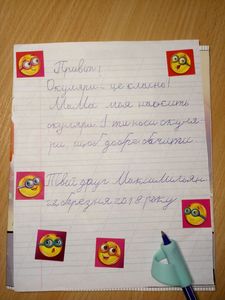 Привіт!
Окуляри - це класно!
МаМа моя носить
окуляри. І ти носи окуля-
ри, щоб добре бачити.
Твій друг Максиміліян
березня 2019 року